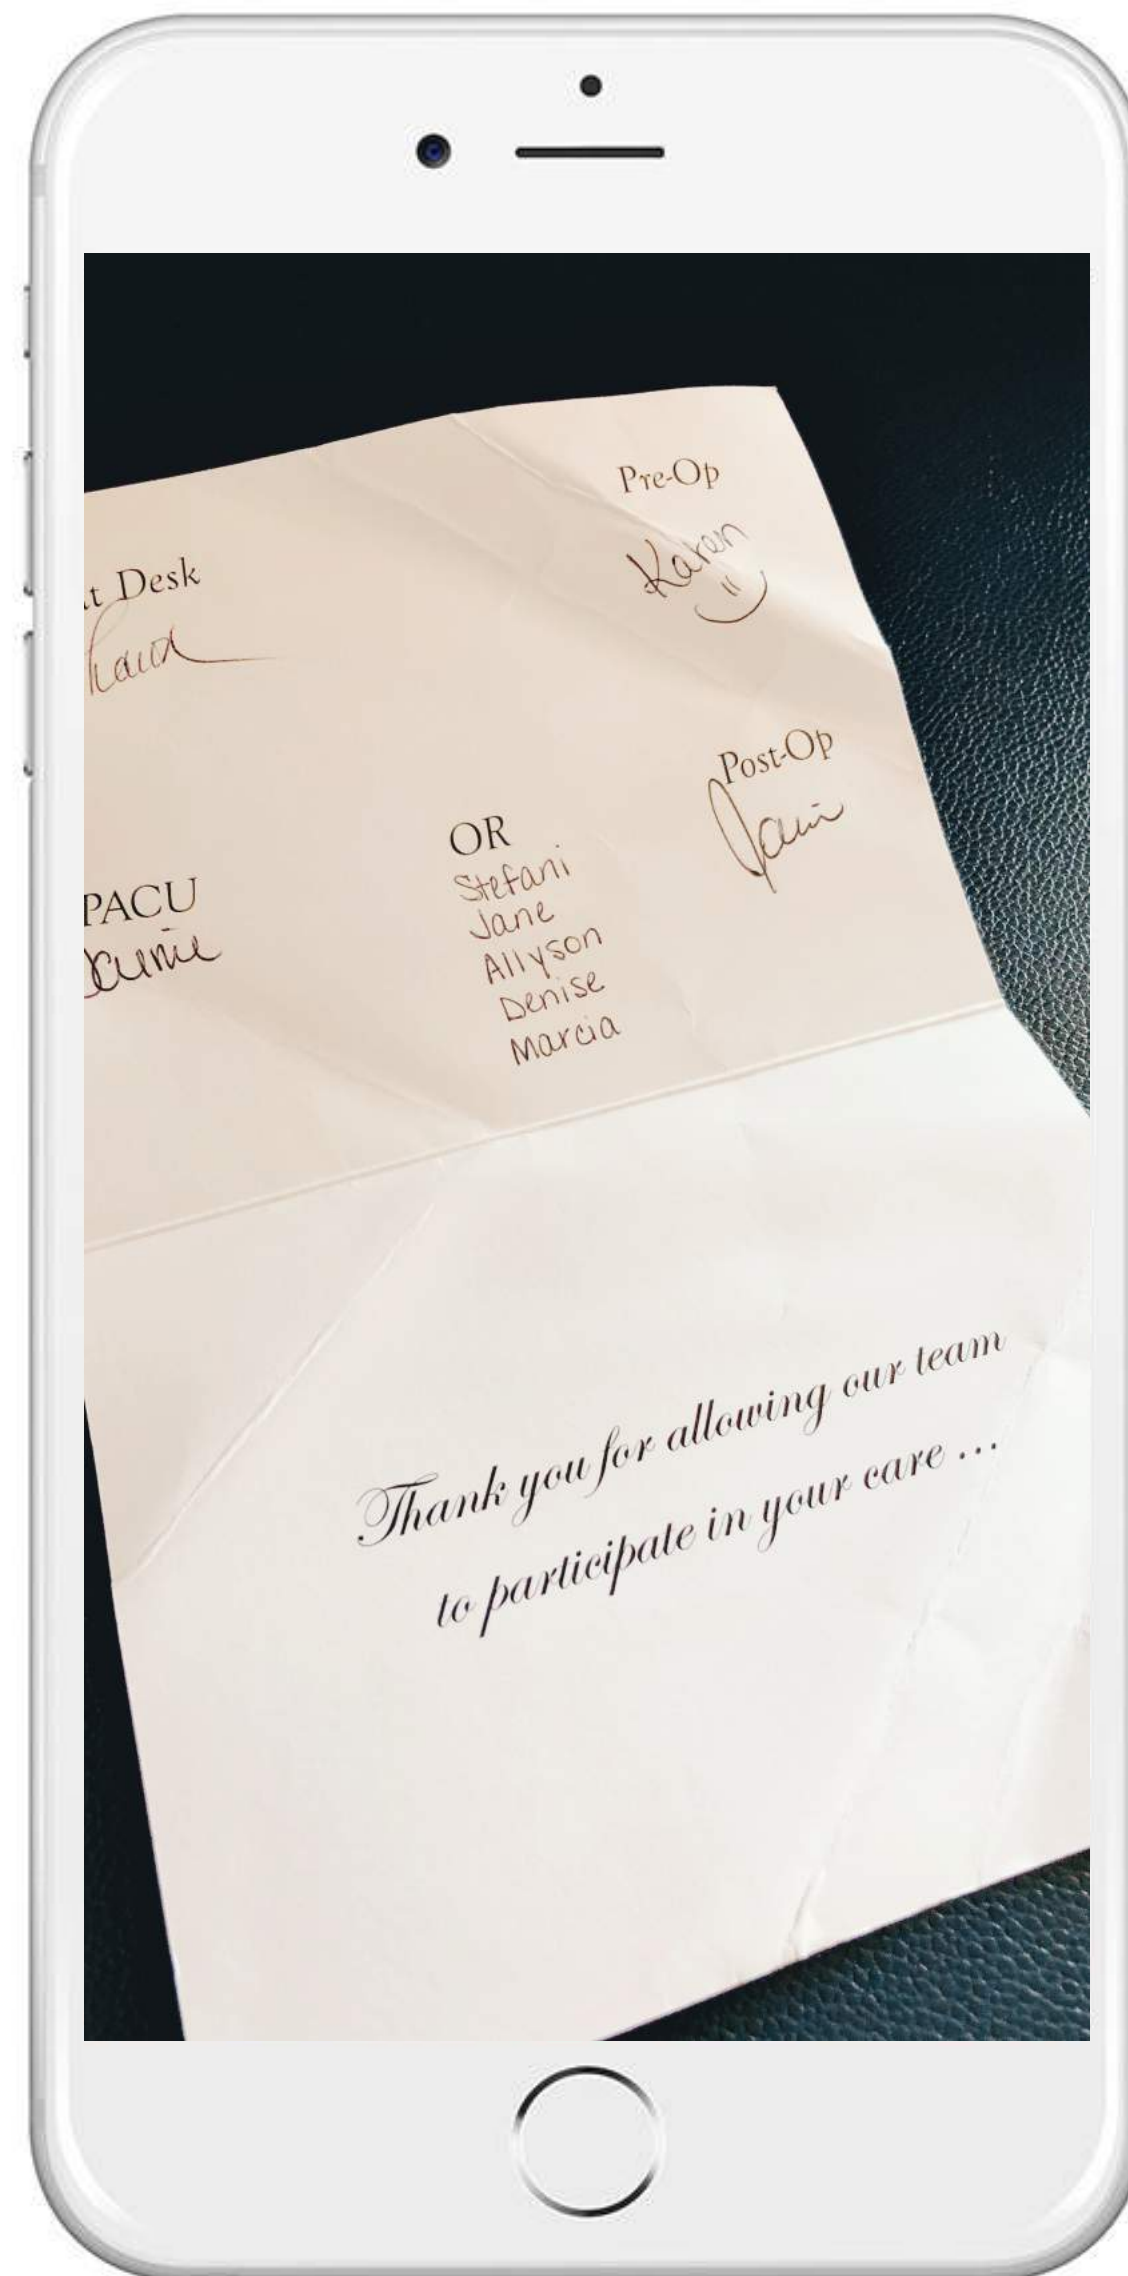 Pre-Op
Karen
t Desk
Post-Op
OR
Stefani
Jane
Allyson
Denise
Marcia
PACU
Thank you for allowing our team
to participate in your care ...